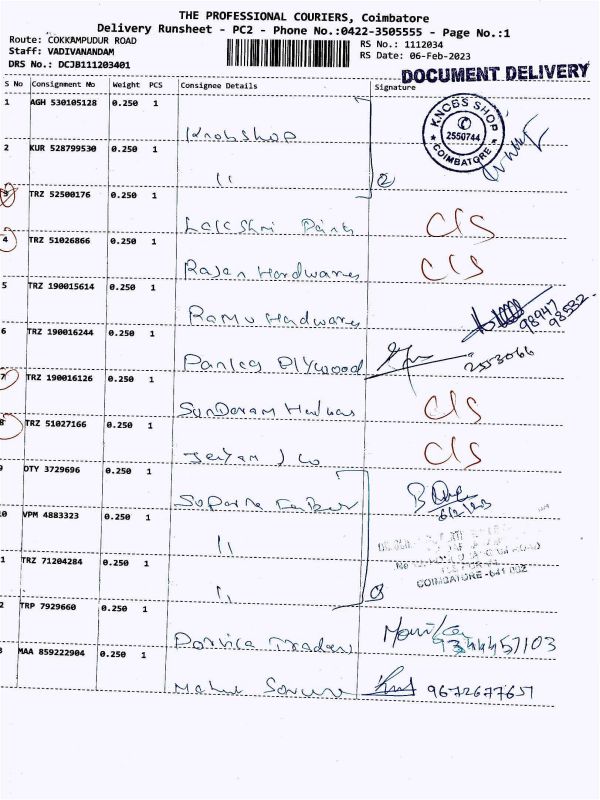 THE PROFESSIONAL COURIERS, Coimbatore
Delivery Runsheet - PC2 - Phone No.:0422-3505555 - Page No.:1
Route: COKKAMPUDUR ROAD
Staff: VADIVANANDAM
DRS No.: DCJB111203401
RS No.: 1112034
RS Date: 06-Feb-2023
DOCUMENT DELIVERY
S No Consignment No Weight PCS Consignee Details Signature
1 AGH 530105128 0.250 1
Knobshop
KNCBS SHOP
2550744
COIMBATORE
2 KUR 528799530 0.250 1
"
2
3 TRZ 52500176 0.250 1
Lakshmi Paints
C/S
4 TRZ 51026866 0.250 1
Rajan Hardwares
C/S
5 TRZ 190015614 0.250 1
Ramu Hadwares
98947
98532
6 TRZ 190016244 0.250 1
Plywood
2553066
7 TRZ 190016126 0.250 1
Sundaram
C/S
8 TRZ 51027166 0.250 1
C/S
9 DTY 3729696 0.250 1
6/2/23
0 VPM 4883323 0.250 1
"
1 TRZ 71204284 0.250 1
"
COIMBATORE - 641 002
2 TRP 7929660 0.250 1
Traders
9344457103
3 MAA 859222904 0.250 1
9672677657